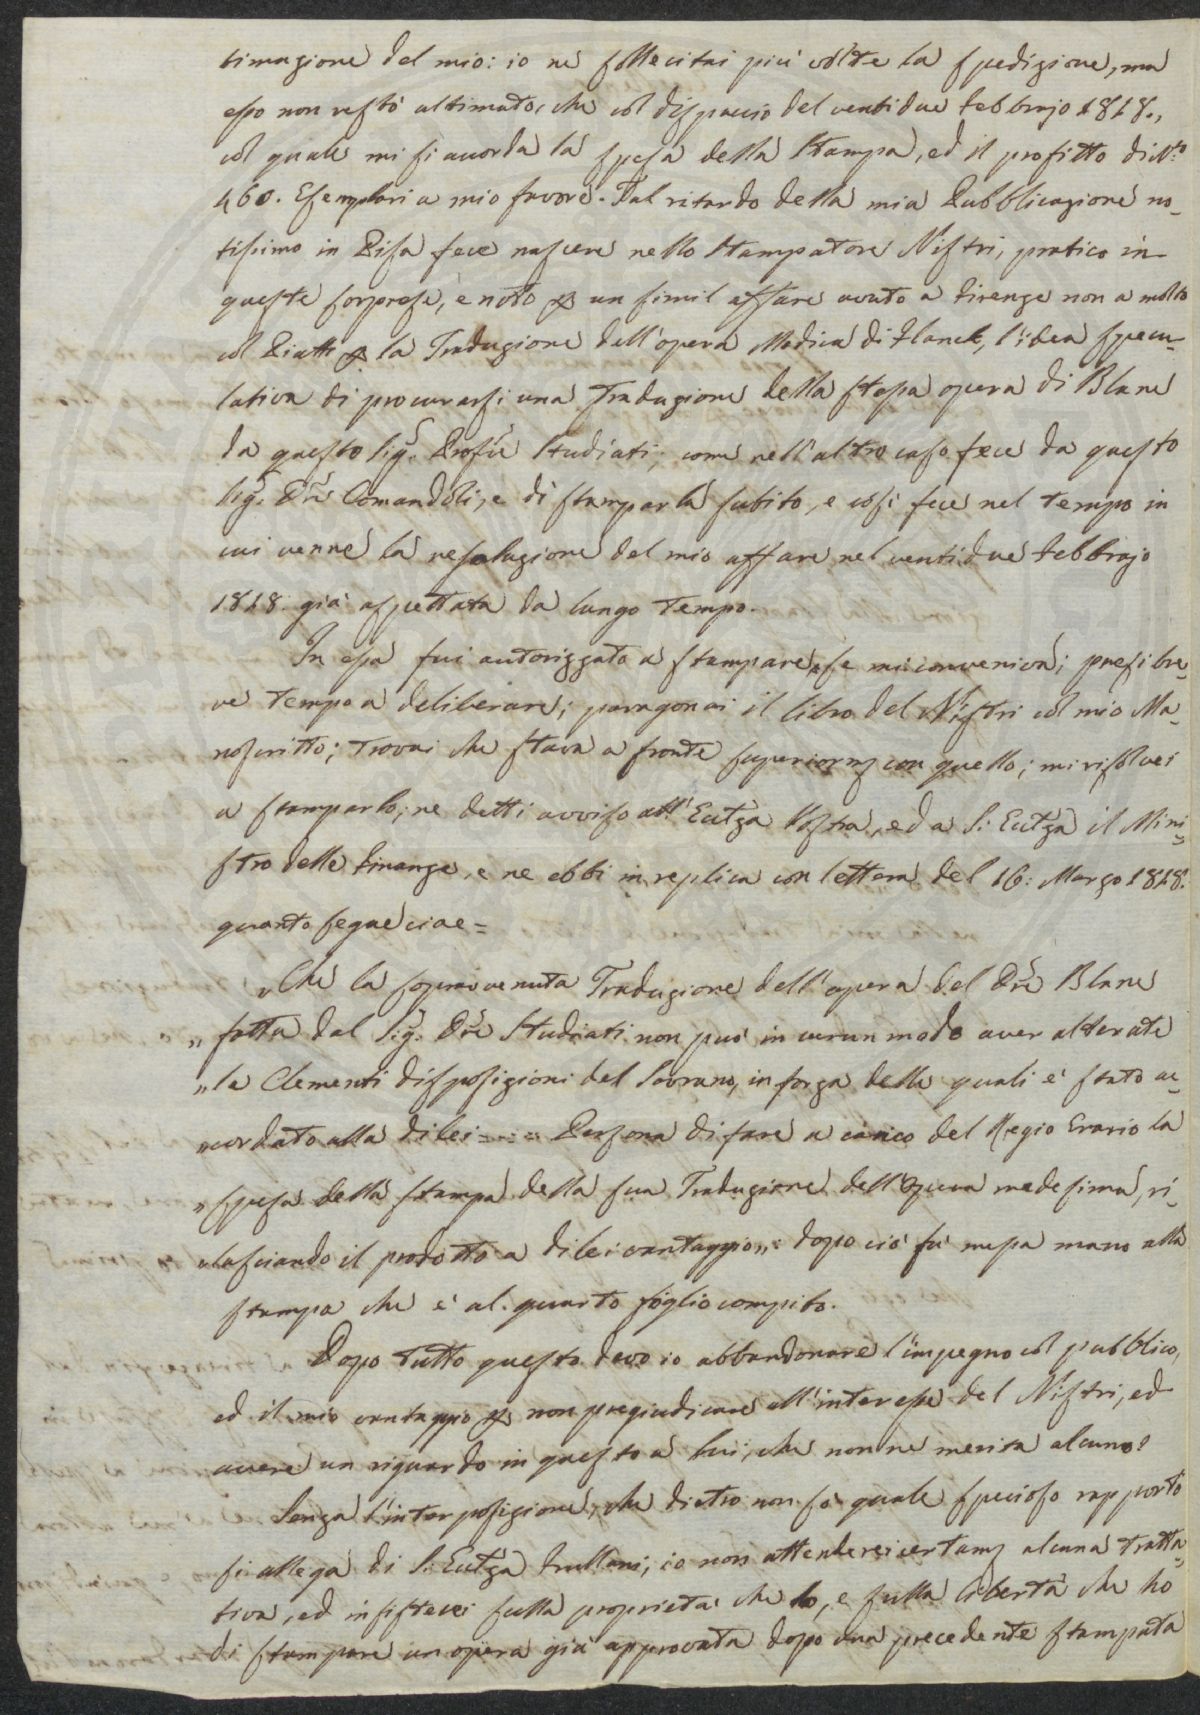 timazione del mio: io ne sollecitai più volte la spedizione, ma
esso non restò ultimato, che col dispaccio del ventidue Febbrajo 1818.,
col quale mi si accorda la spesa della Stampa, ed il profitto di N.ro
460. Esemplari a mio favore. Tal ritardo della mia Pubblicazione no-
tissimo in Pisa fece nascere nello Stampatore Nistri, pratico in
queste sorprese, è noto p un simil affare avuto a Firenze non a molto
col Piatti p la Traduzione dell'opera Medica di Planck, l'idea specu-
lativa di procurarsi una Traduzione della stessa opera di Blane
da questo Sig.r Profre Studiati; come nell'altro caso fece da questo
Sig.r Dre Comandoli, e di stamparla subito, e così fece nel tempo in
cui venne la resoluzione del mio affare nel ventidue Febbrajo
1818. già aspettata da lungo Tempo.
In essa fui autorizzato a stampare, se mi conveniva; presi bre-
ve tempo a deliberare; paragonai il libro del Nistri col mio Ma-
noscritto; trovai che stava a fronte superiormz con quello; mi risolvei
a stamparlo; ne detti avviso all'Ecclza Vostra, ed a S. Ecclza il Mini-
stro delle Finanze, e ne ebbi in replica con lettera del 16: Marzo 1818.
quanto segue cioe=
„Che la sopravvenuta Traduzione dell'opera del Dre Blane
„ fatta dal Sig.r Dre Studiati non può in verun modo aver alterate
„le Clementi disposizioni del Sovrano, in forza delle quali è stato ac-
„cordato alla di lei Persona di fare a carico del Regio Erario la
„spesa della stampa della sua Traduzione dell'Opera medesima, ri-
„lasciando il prodotto a di lei vantaggio„: dopo ciò fu messa mano alla
stampa che è al quarto foglio compito.
Dopo tutto questo devo io abbandonare l'impegno col pubblico,
ed il mio vantaggio p non pregiudicare all'interesse del Nistri, ed
avere un riguardo in questo a lui, che non ne merita alcuno?
Senza l'interposizione, che dietro non so quale specioso rapporto
si allega di S. Ecclza Frullani; io non attenderei certamz alcuna tratta-
tiva, ed insisterei sulla proprietà che ho, e sulla libertà che ho
di stampare un opera già approvata dopo una precedente stampata